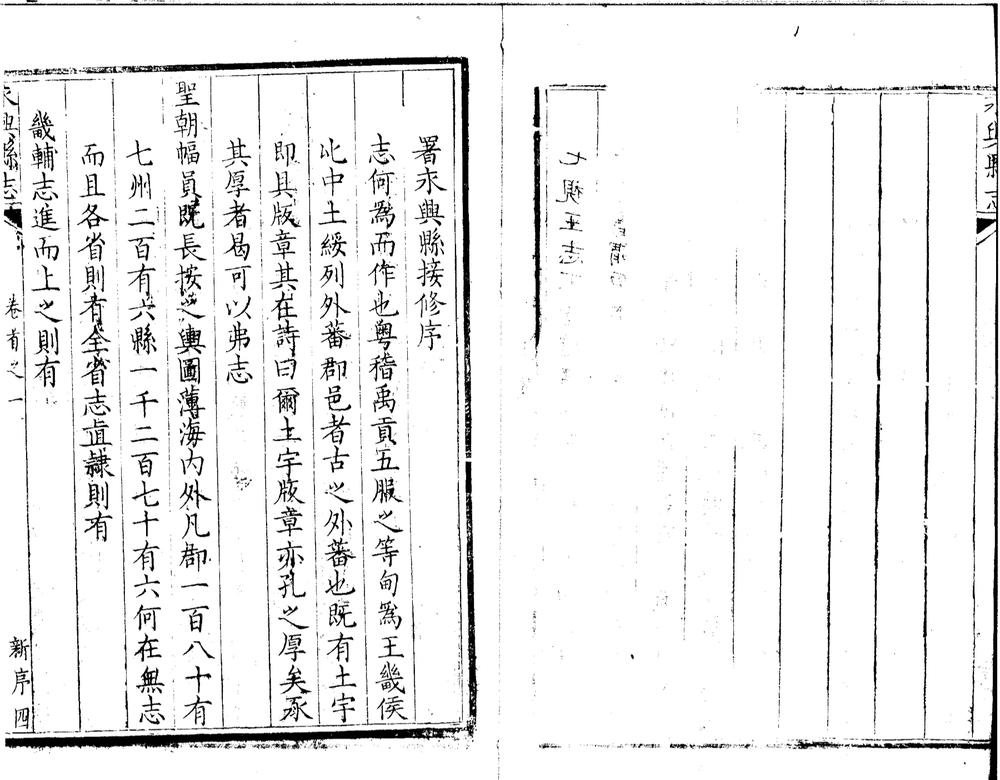 永興縣志
七
署永興縣接修序
志何為而作也粤稽禹貢五服之等甸為王畿侯
比中土綏列外蕃郡邑者古之外蕃也既有土宇
即具版章其在詩曰爾土宇版章亦孔之厚矣承
其厚者曷可以弗志
聖朝幅員既長按之輿圖薄海內外凡郡一百八十有
七州二百有六縣一千二百七十有六何在無志
而且各省則有全省志直隸則有
畿輔志進而上之則有
永興縣志 卷首之一 新序 四